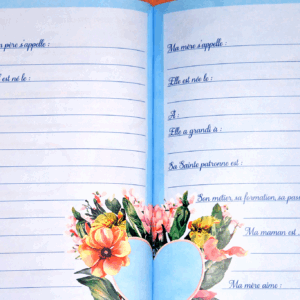 père s'appelle :
est né le :
Ma mère s'appelle :
Elle est née le :
À :
Elle a grandi à :
Sa Sainte patronne est :
Son métier, sa formation, sa
Ma maman est
Ma mère aime :